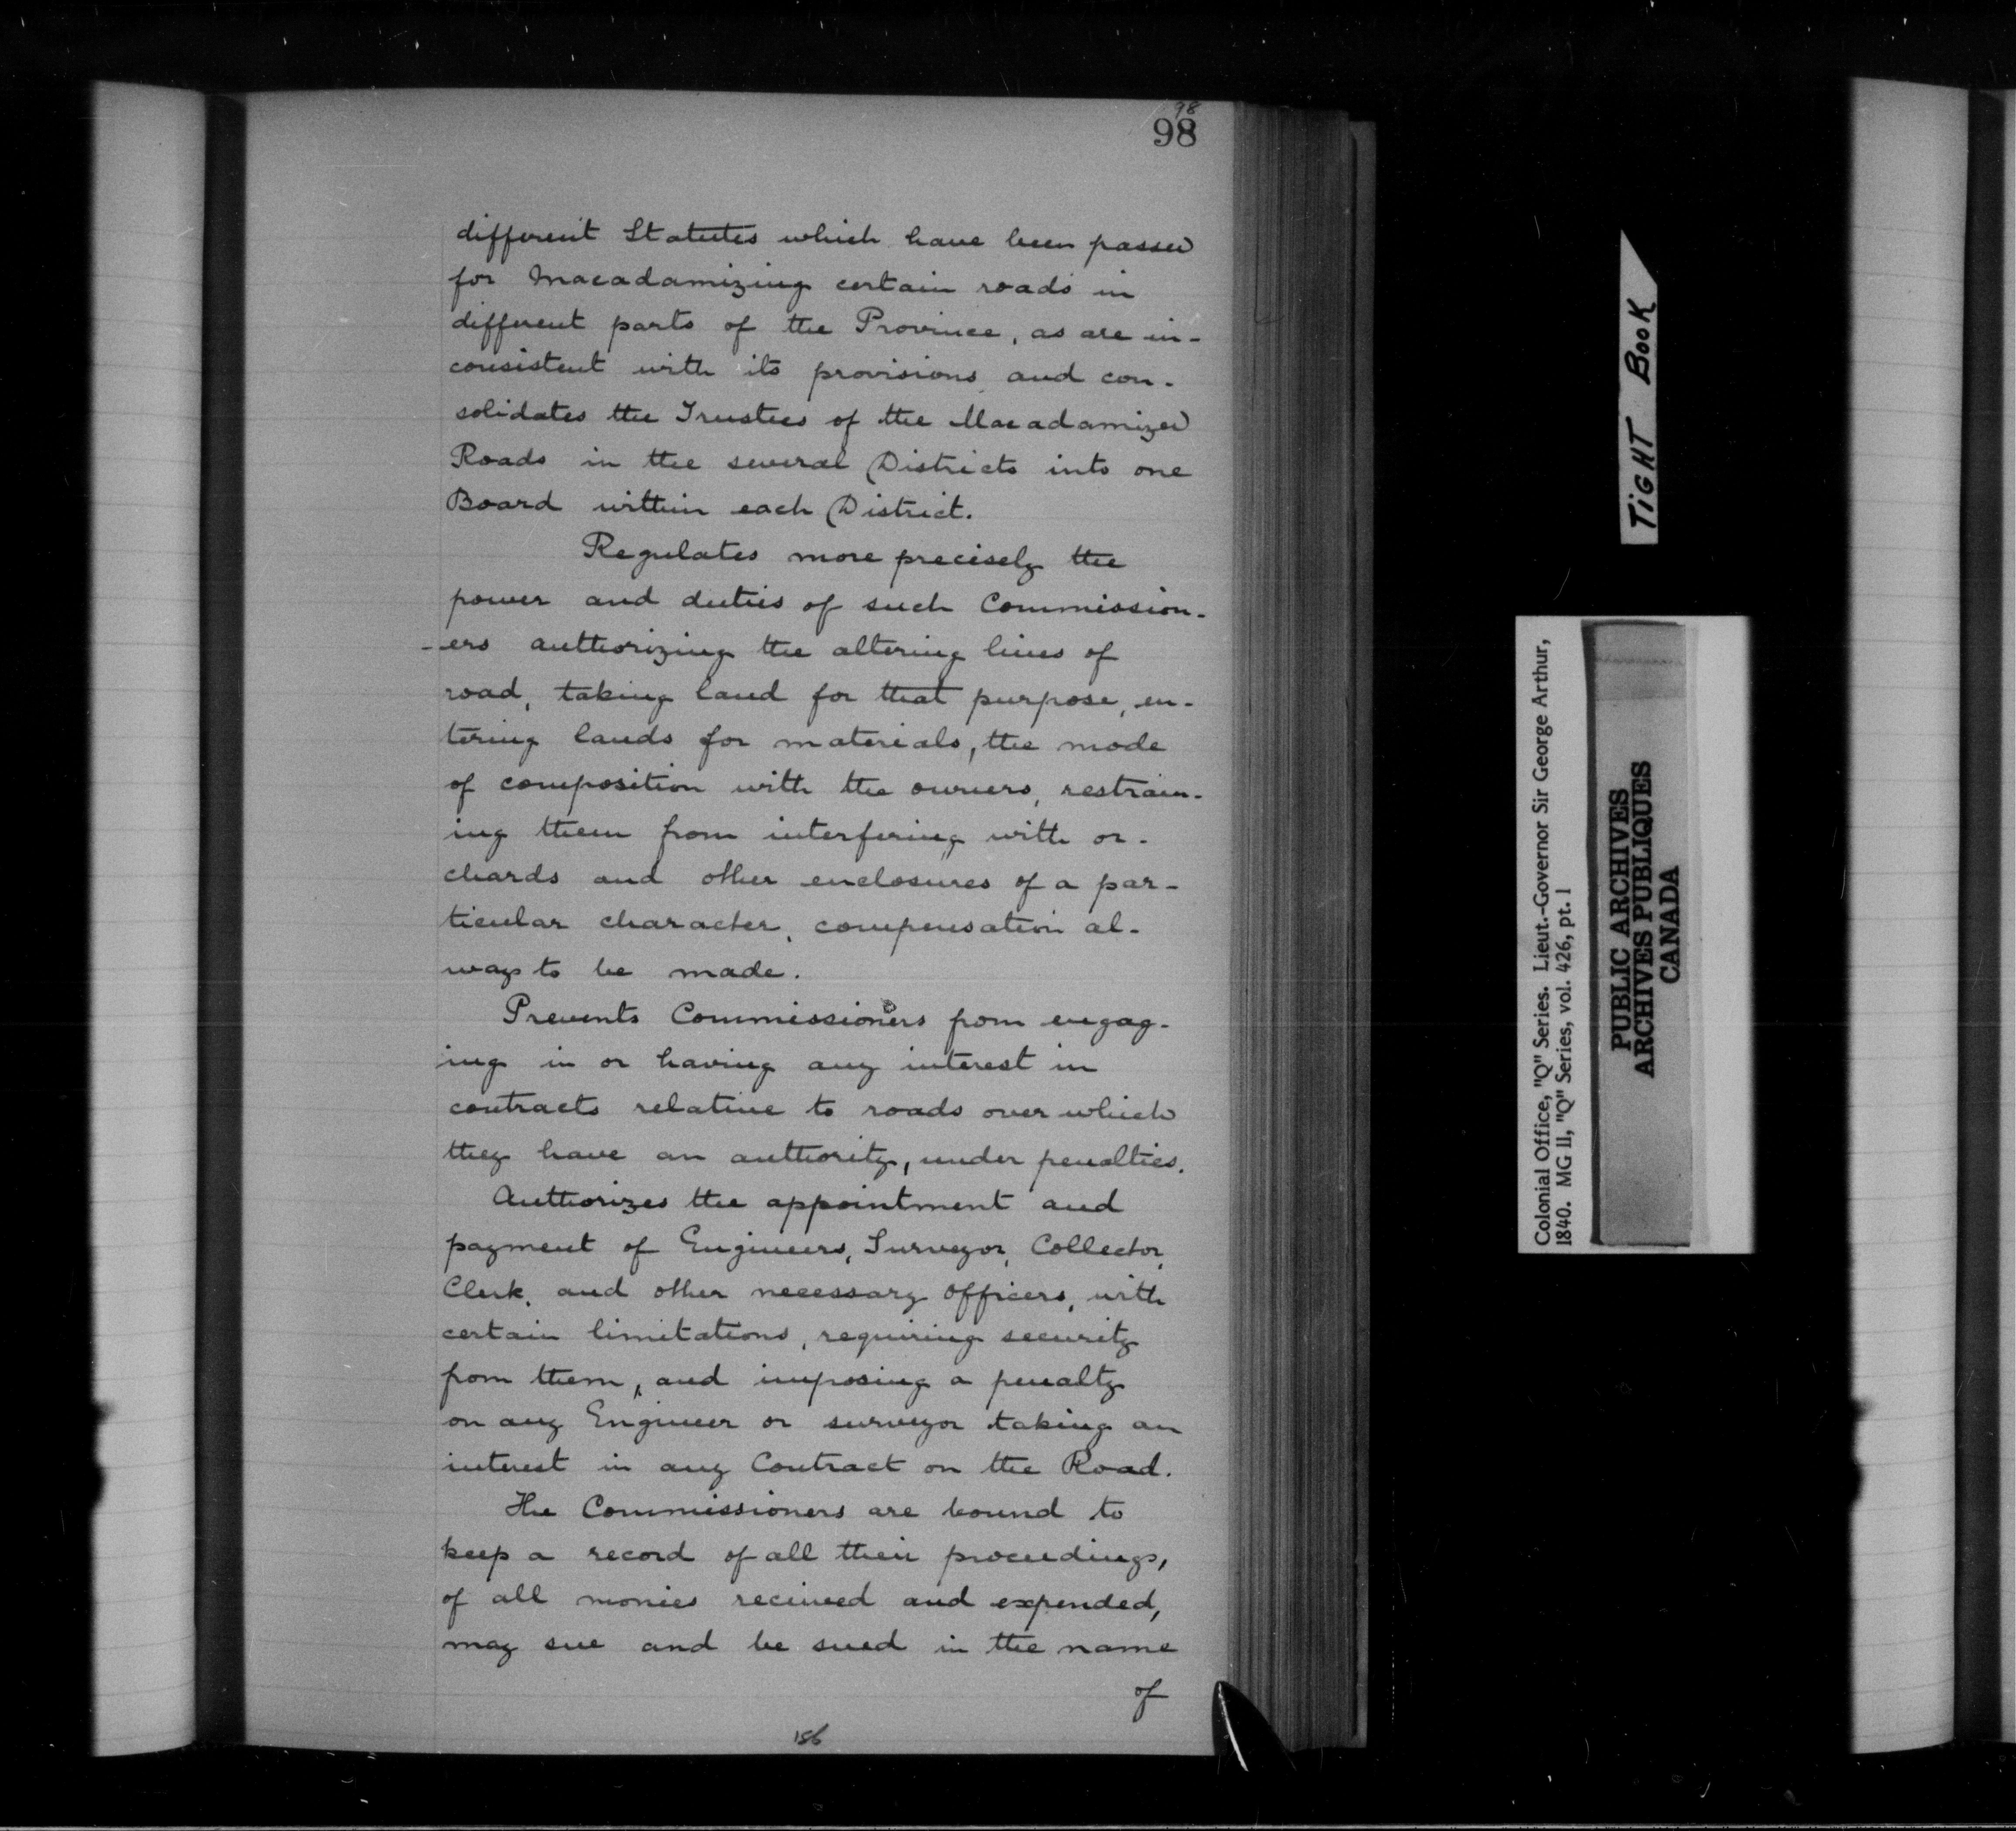 98
98
different Statutes which have been passed
for Macadamizing certain roads in
different parts of the Province, as are in-
consistent with its provisions and con-
solidates the Trustees of the Macadamized
Roads in the several Districts into one
Board within each District.
Regulates more precisely the
power and duties of such Commission-
-ers authorizing the altering lines of
road, taking land for that purpose, en-
tering lands for materials, the mode
of composition with the owners, restrain-
ing them from interfering with or-
chards and other enclosures of a par-
ticular character, compensation al-
ways to be made.
Prevents Commissioners from engag-
ing in or having any interest in
contracts relative to roads over which
they have an authority, under penalties.
Authorizes the appointment and
payment of Engineers, Surveyor, Collector,
Clerk, and other necessary officers, with
certain limitations, requiring security
from them, and imposing a penalty
on any Engineer or surveyor taking an
interest in any Contract on the Road.
The Commissioners are bound to
keep a record of all their proceedings,
of all monies received and expended,
may sue and be sued in the name
of
156
TIGHT BOOK
Colonial Office, "Q" Series. Lieut.-Governor Sir George Arthur,
1840. MG 11, "Q" Series, vol. 426, pt. 1
PUBLIC ARCHIVES
ARCHIVES PUBLIQUES
CANADA